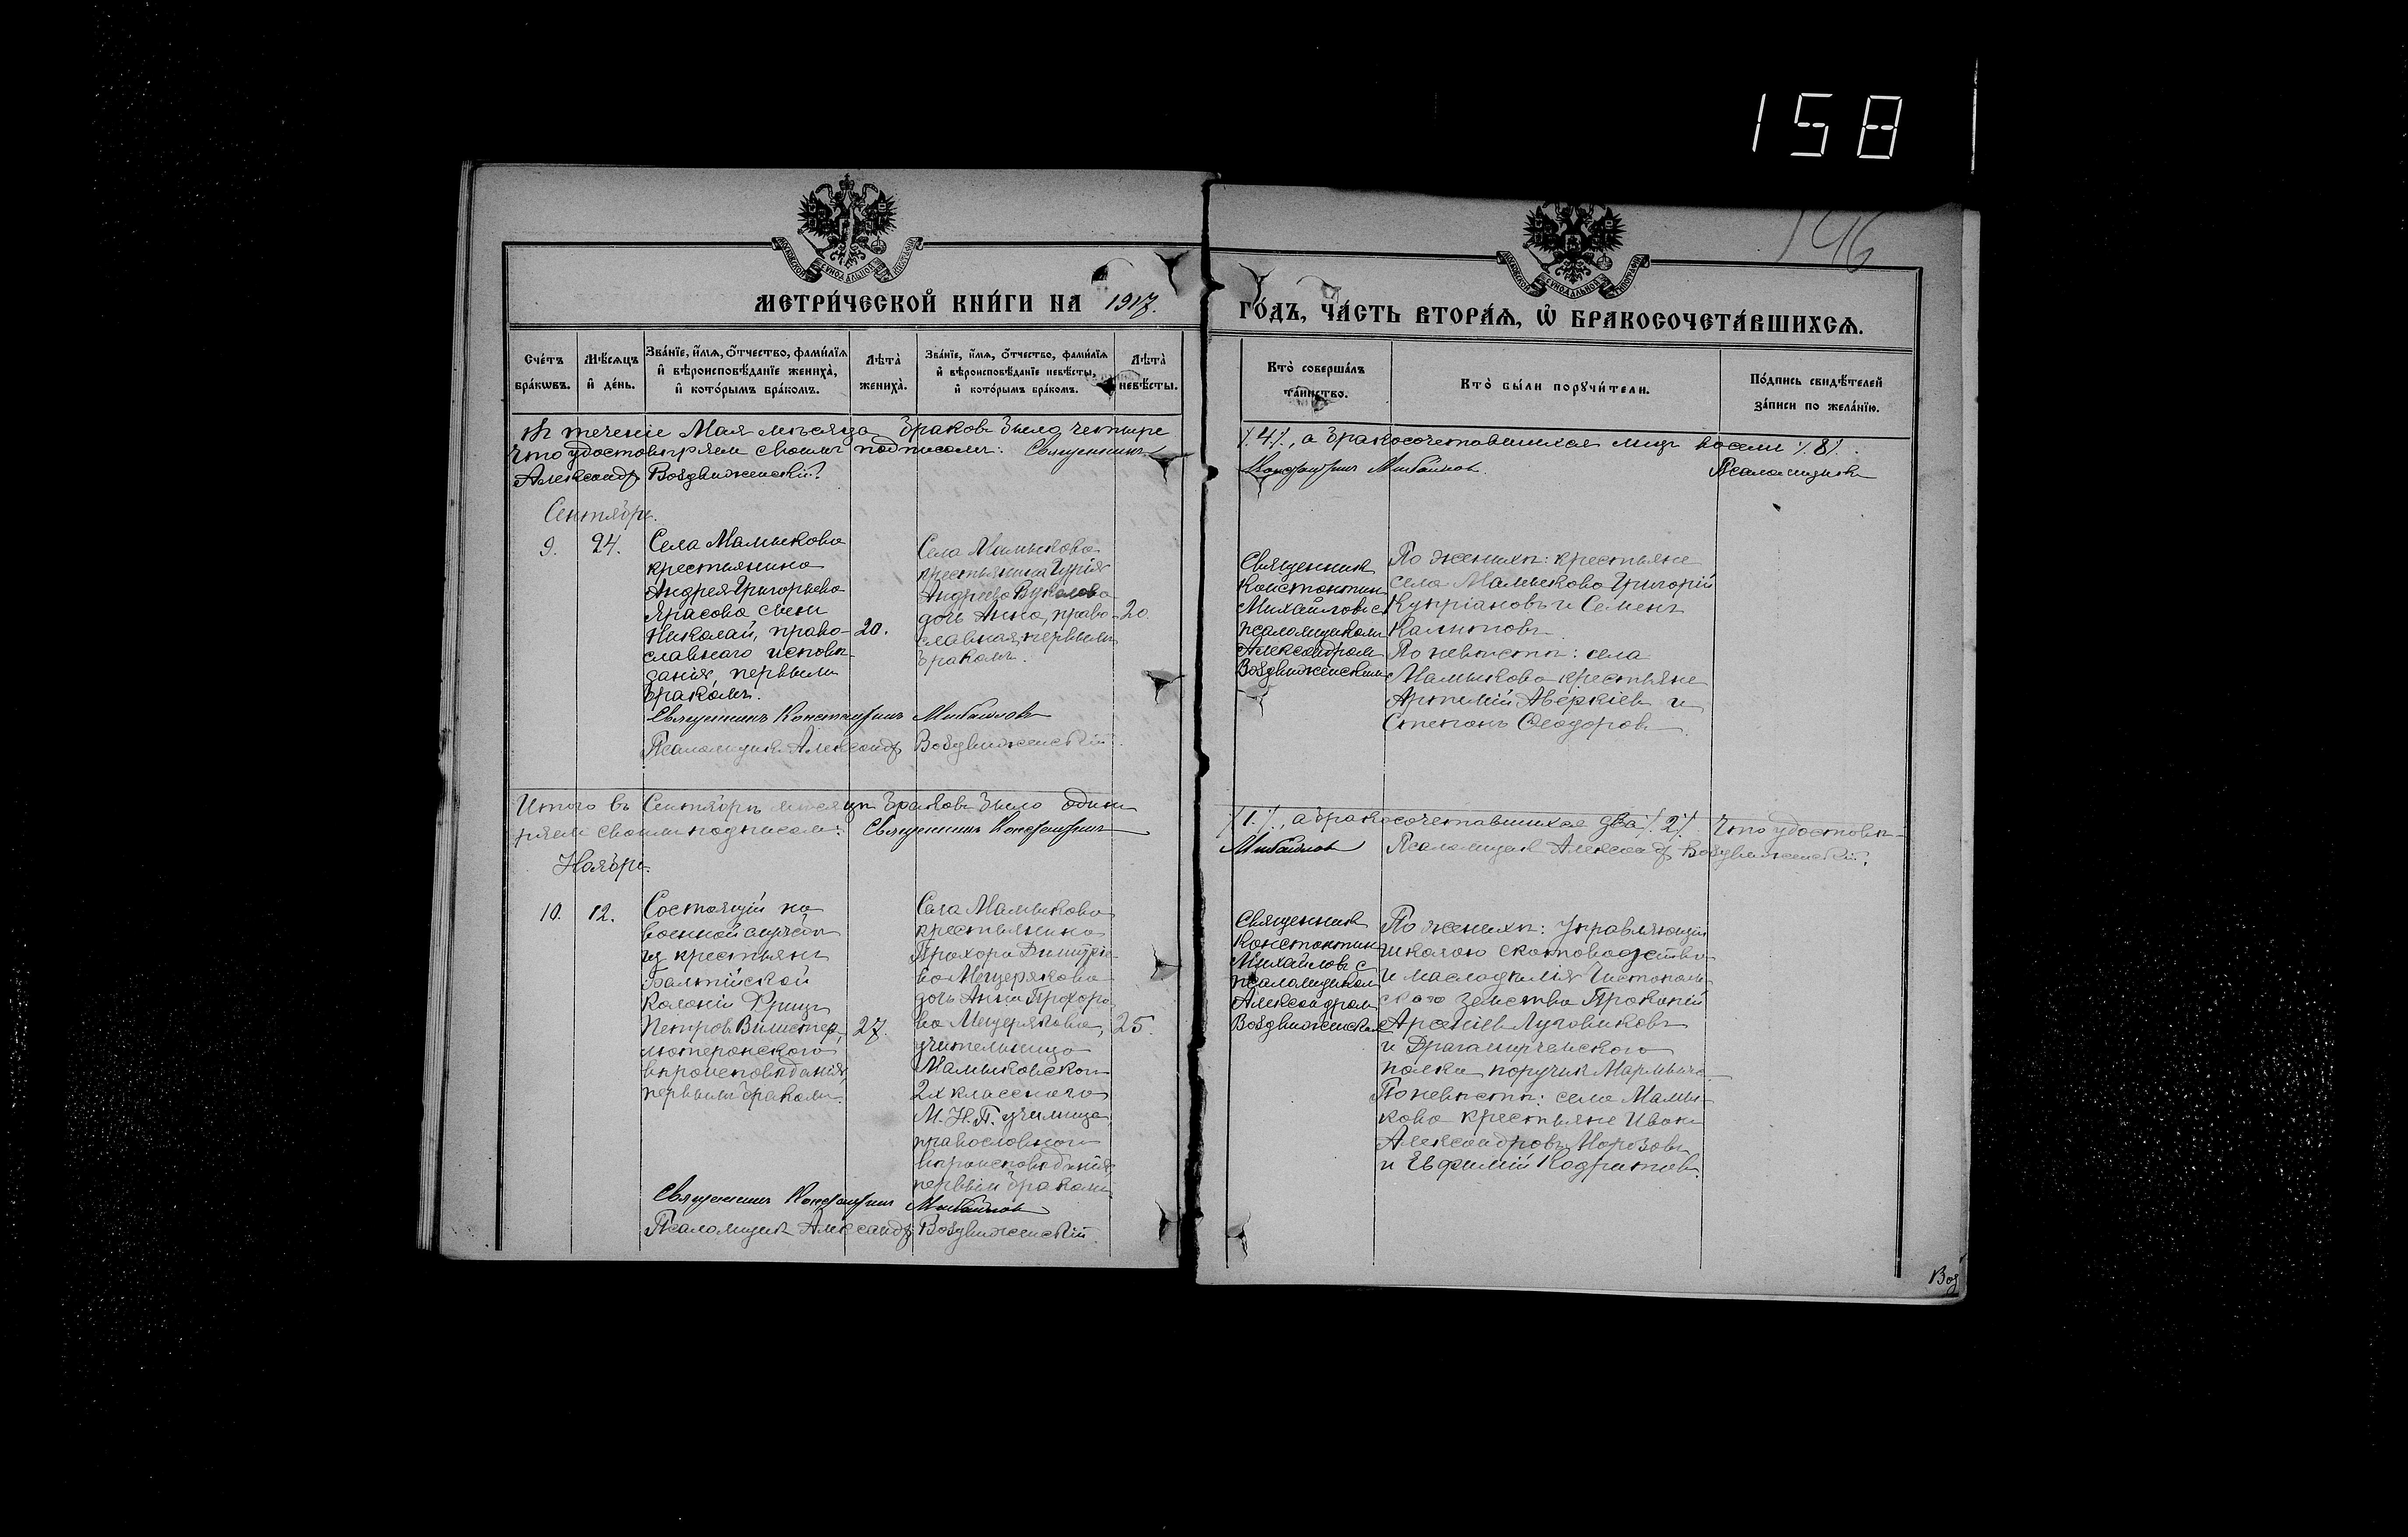 158
146
МОСКОВСКОЙ СѴНОДАЛЬНОЙ ТИПОГРАФІИ
МОСКОВСКОЙ СѴНОДАЛЬНОЙ ТИПОГРАФІИ
МЕТРИ́ЧЕСКОЙ КНИ́ГИ НА 1917.
ГО́ДЪ, ЧА́СТЬ ВТОРА́Ѧ, Ѽ БРАКОСОЧЕТА́ВШИХСѦ.
Сче́тъ бра́кѡвъ.
Мѣ́сяцъ и де́нь.
Зва́нїе, и́мѧ, ѻ́тчество, фами́лїѧ и вѣроисповѣ́данїе жениха̀, и кото́рымъ бра́комъ.
Лѣта̀ жениха̀.
Зва́нїе, и́мѧ, ѻ́тчество, фами́лїѧ и вѣроисповѣ́данїе невѣ́сты, и кото́рымъ бра́комъ.
Лѣта̀ невѣ́сты.
Кто̀ соверша́лъ та́инство.
Кто̀ бы́ли порꙋчи́тели.
По́дпись свидѣ́телей за́писи по жела́нїю.
Въ теченіе Мая мѣсяца браковъ было четыре
/.4./., а бракосочетавшихся лицъ восемь /.8/.
Что удостовѣряемъ своимъ подписомъ: Священникъ
Константинъ Михайловъ. Псаломщикъ
Александръ Воздвиженскій.
Сентябрь.
9. 24.
Села Мамыкова
крестьянина
Андрея Григорьева
сынъ
Николай, право-
славнаго исповѣ-
данія, первымъ
бракомъ.
20.
Села Мамыкова
крестьянина Гурія
Андреева Вуколова
дочь Анна, право-
славная, первымъ
бракомъ.
20.
Священникъ
Константинъ
Михайловъ съ
псаломщикомъ
Александромъ
Воздвиженскимъ
По женихѣ: крестьяне
села Мамыкова Григорій
Купріановъ и Семенъ
По невѣстѣ: села
Мамыкова крестьяне
Артемій Аверкіевъ и
Степанъ Ѳеодоровъ.
Священникъ Константинъ Михайловъ
Псаломщикъ Александръ Воздвиженскій.
Итого въ Сентябрѣ мѣсяцѣ браковъ было одинъ
/.1./., а бракосочетавшихся два /.2/. Что удостовѣ-
ряемъ своимъ подписомъ: Священникъ Константинъ
Михайловъ Псаломщикъ Александръ Воздвиженскій.
Ноябрь.
10. 12.
Состоящій на
военной службѣ
изъ крестьянъ
Балтійской
колоніи Фрицъ
Петровъ
лютеранскаго
вѣроисповѣданія,
первымъ бракомъ.
27.
Села Мамыкова
крестьянина
Прохора Димитріе-
ва Мещерякова
дочь Анна Прохоро-
ва Мещерякова,
учительница
Мамыковскаго
2хкласснаго
М. Н. П. училища,
православнаго
вѣроисповѣданія,
первымъ бракомъ
25.
Священникъ
Константинъ
Михайловъ съ
псаломщикомъ
Александромъ
Воздвиженскимъ
По женихѣ: Управляющій
школою скотоводства
и маслодѣлія Чистополь-
скаго земства Прокопій
Арсеніевъ Луговиковъ
и
полка поручикъ
По невѣстѣ: села Мамы-
кова крестьяне Иванъ
Александровъ Морозовъ
и Евфимій
Священникъ Константинъ Михайловъ
Псаломщикъ Александръ Воздвиженскій.
Воз